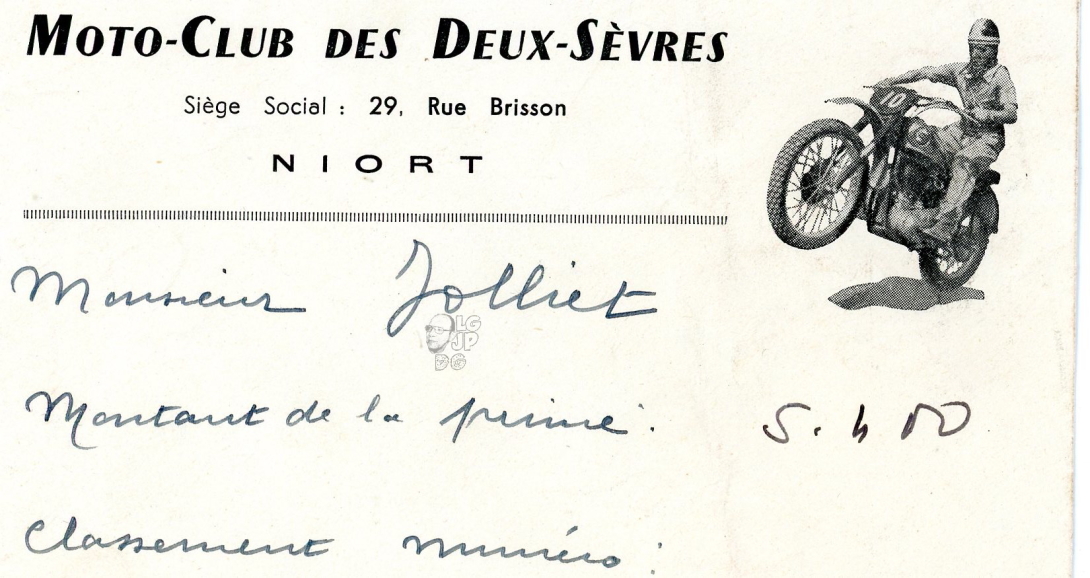 MOTO-CLUB DES DEUX-SÈVRES
Siège Social : 29, Rue Brisson
NIORT
10
Monsieur Jolliet
LG
JP
DG
Montant de la prime : 5.400
Classement numéro :